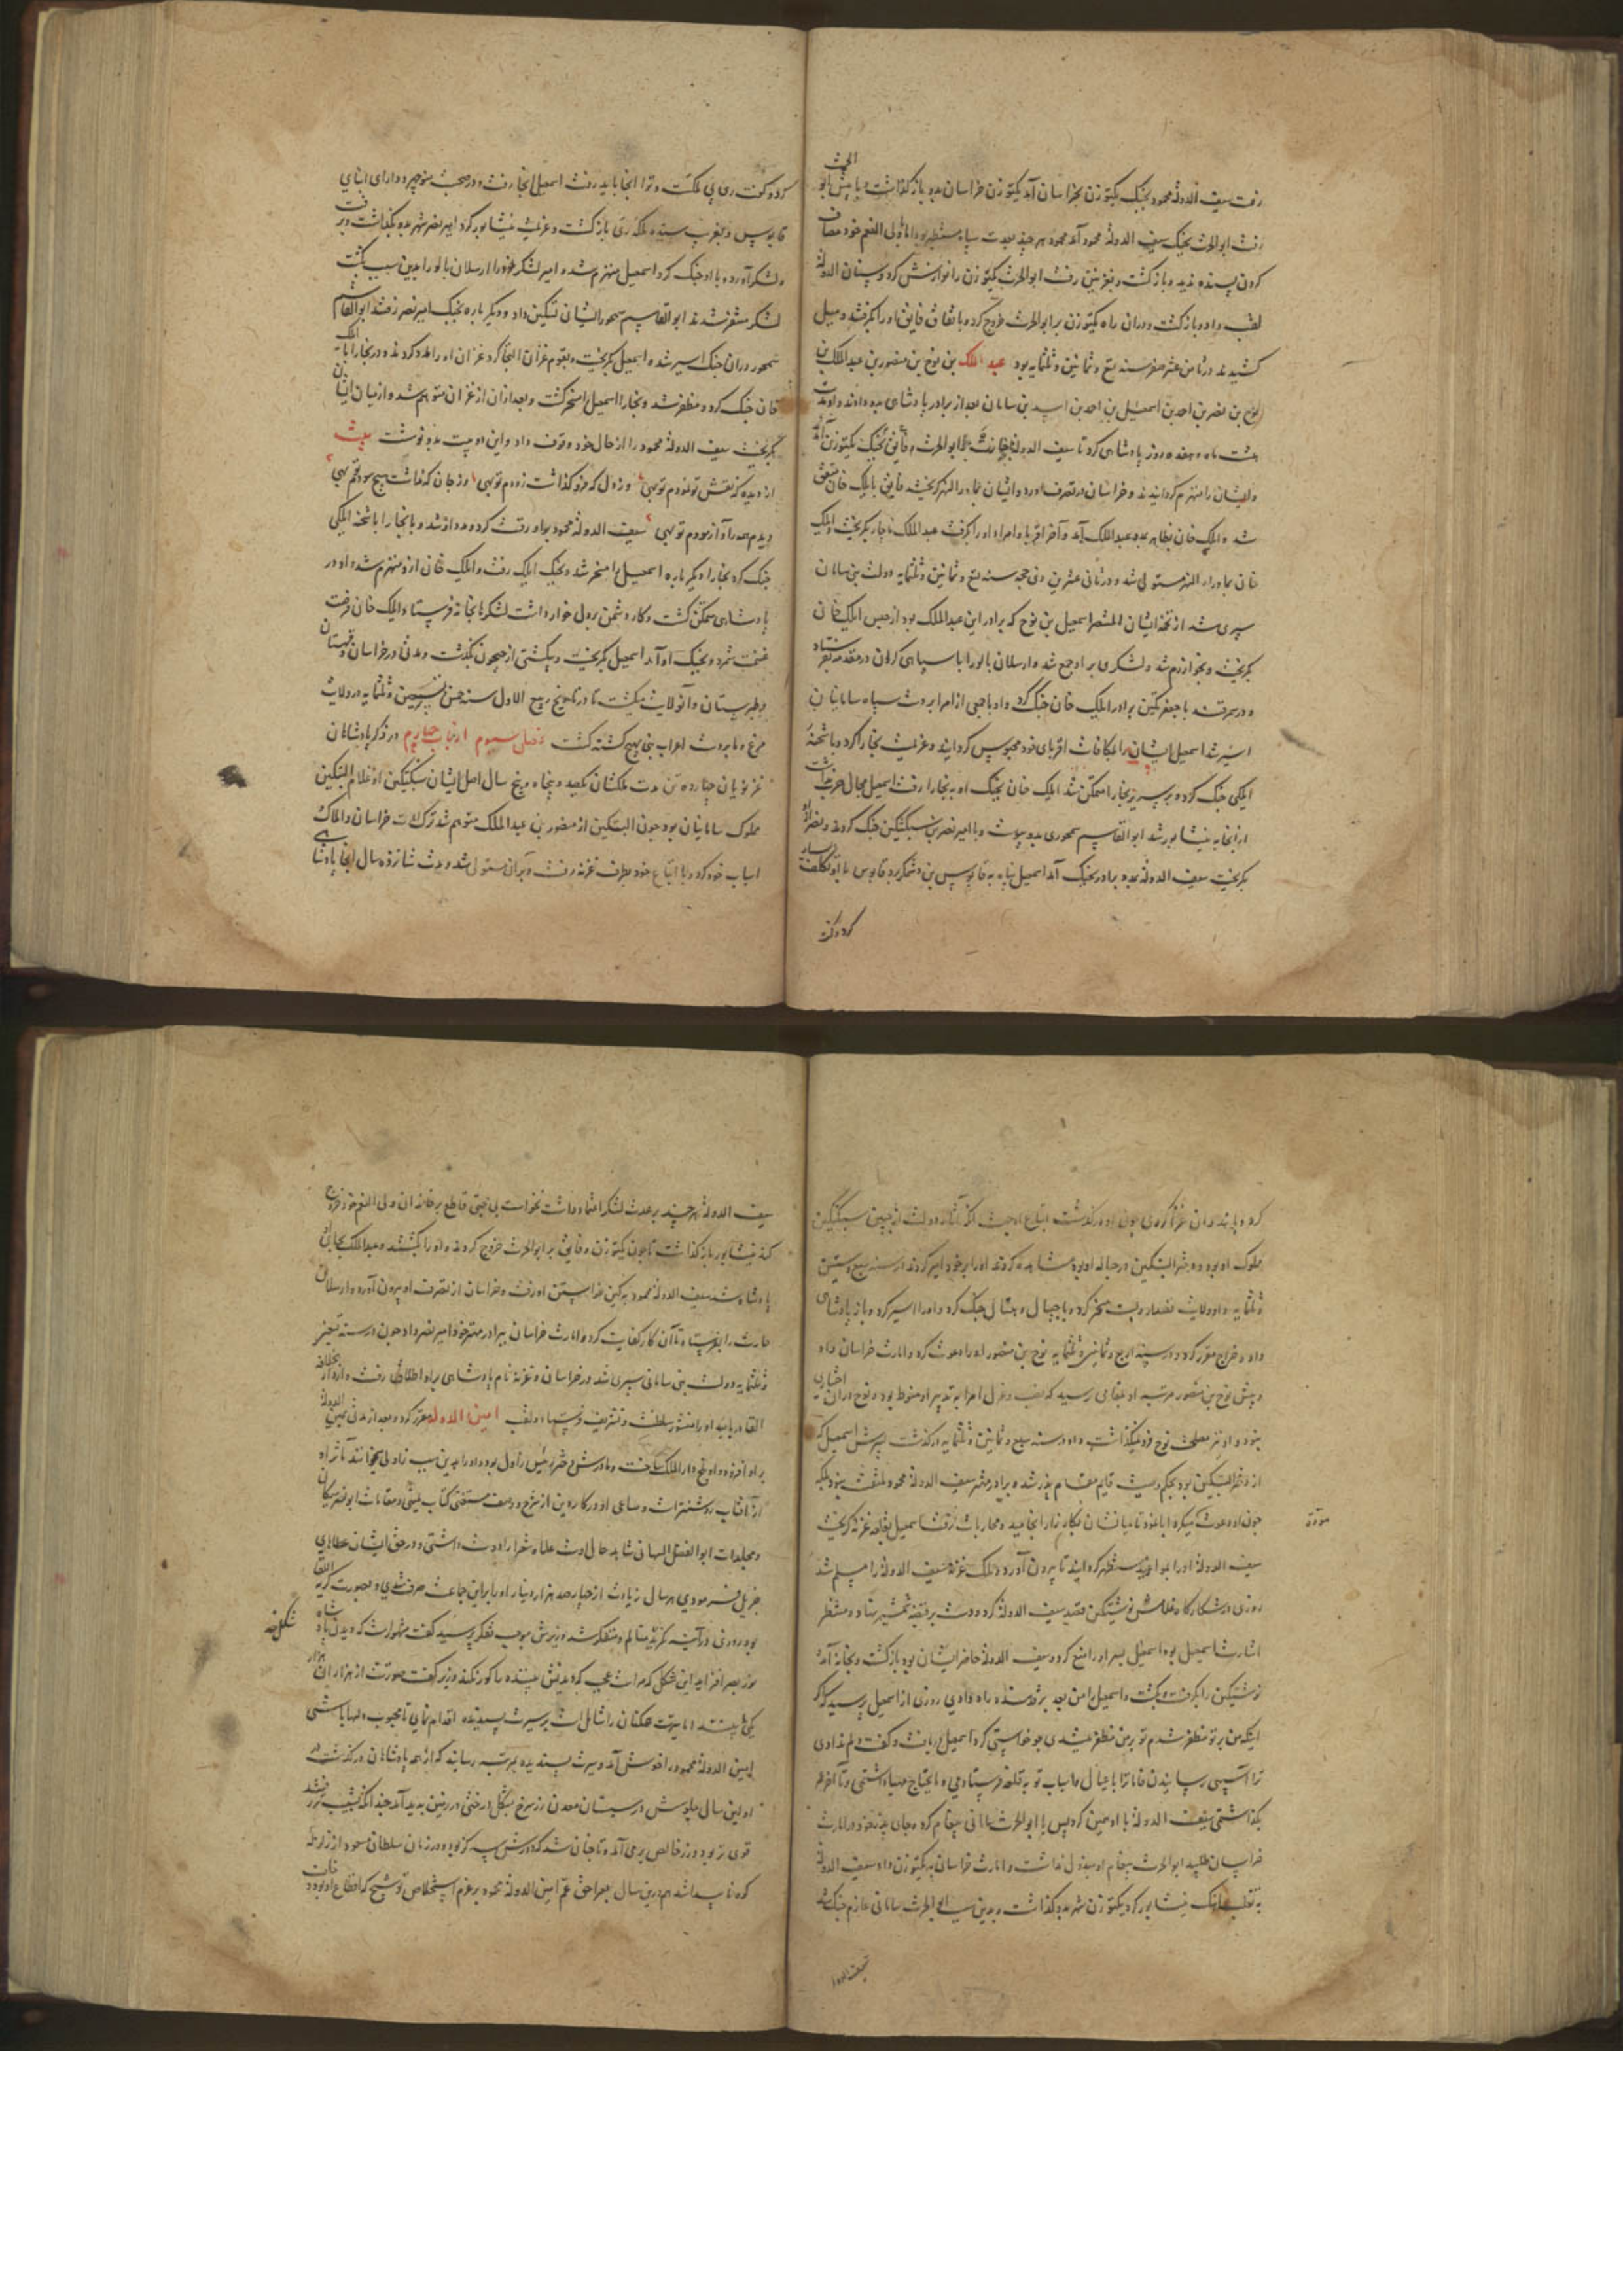 رفت سیف الدوله محمود بجنگ بکتوزن بخراسان آمد بکتوزن خراسان بدو بازگذاشت و با پیش ابو الحرث
رفت ابوالحرث بجنگ سیف الدوله محمود آمد محمود هر چند بعدت سپاه مستظهر بود اما با ولی النعم خود مصاف
کردن پسنده ندید و بازگشت و بغزنین رفت ابوالحرث بکتوزن را نوازش کرد و سنان الدوله
لقب داد و بازگشت و در آن راه بکتوزن بر ابوالحرث خروج کرده باتفاق فایق او را بگرفتند و میل
کشیدند در ثامن عشر صفر سنه تسع و ثمانین و ثلثمایه بود عبد الملک بن نوح بن منصور بن عبد الملک بن
نوح بن نصر بن احمد بن اسمعیل بن احمد بن اسد بن سامان بعد از برادر پادشاهی بدو دادند و او مدت
هشت ماه و هفده روز پادشاهی کرد تا سیف الدوله بخون ابوالحرث و فایق بجنگ بکتوزن آمد
و ایشان را منهزم گردانیدند و خراسان در تصرف آورد و ایشان بماوراءالنهر گریختند فایق با ایلک خان متفق
شد و ایلک خان بظاهر بمدد عبدالملک آمد و آخر اقربا و امراء او را بگرفت عبد الملک ناچار بگریخت و ایلک
خان بماوراء النهر مستولی شد و در ثانی عشرین ذی حجه سنه تسع و ثمانین و ثلثمایه دولت بنی سامان
سپری شد از تخم ایشان المنتصر اسمعیل بن نوح که برادر این عبدالملک بود از حبس ایلک خان
بگریخت و بخوارزم شد و لشکری برو جمع شد و ارسلان بالو را با سپاهی گران در مقدمه بفرستاد
و در سمرقند با جعفر تکین برادر ایلک خان جنگ کرد و او با جمعی از امرا بر دست سپاه سامانیان
اسیر شد اسمعیل ایشان را بمکافات اقربای خود محبوس گردانید و عزیمت بخارا کرد و با شحنهٔ
ایلکی جنگ کرده بر سریر بخارا ممکن شد ایلک خان بجنگ او به بخارا رفت اسمعیل مجال حرب نداشت
از انجا به نیشابور شد ابو القاسم سمجوری بدو پیوست و با امیر نصر بن سبکتکین جنگ کردند و نصر از
بگریخت سیف الدوله بمدد برادر بجنگ آمد اسمعیل پناه به قابوس بن وشمگیر برد قابوس با او تکلف بسیار
کرد و گفت
کرد و گفت ری بی ملکست و ترا انجا باید رفت اسمعیل انجا رفت و در صحبت منوچهر و دارای ابنای
قابوس و بفریب سیده ملکه ری بازگشت و عزیمت نیشابور کرد امیر نصر شهر بدو بگذاشت و برفت
و لشکر آورده با او جنگ کرد اسمعیل منهزم شد و امیر لشکر خود را ارسلان بالو را بدین سبب بکشت
لشکر متنفر شدند ابو القاسم سمجور ایشان را تسکین داد و دیگر باره بجنگ امیر نصر رفتند ابو القاسم
سمجور در آن جنگ اسیر شد و اسمعیل بگریخت و بقوم غزان التجا کرد و غزان او را مدد کردند و در بخارا با ایلک
خان جنگ کرد و مظفر شد و بخارا اسمعیل را مسخر گشت و بعد از آن از غزان متوهم شد و از میان ایشان
بگریخت سیف الدوله محمود را از حال خود وقوف داد و این دو بیت بدو نوشت بیت
از دیده که نقش تو نمودم تو بهی وز دل که فرو گذاشت زودم تو بهی وز جان که نداشت هیچ سودم تو بهی
دیدم همه را و آزمودم تو بهی سیف الدوله محمود برو رقت کرد و مدد از شد و با بخارا با شحنه ایلکی
جنگ کرد بخارا دیگر باره اسمعیل را مسخر شد و بجنگ ایلک رفت و ایلک خان از و منهزم شد و او در
پادشاهی ممکن گشت و کار دشمن بر دل خوار داشت لشکر را بخانه فرستاد و ایلک خان فرصت
غنیمت شمرد و بجنگ او آمد اسمعیل بگریخت و بکشتی از جیحون بگذشت و مدتی در خراسان و قهستان
و طبرستان و آن ولایت میگشت تا در تاریخ ربیع الاول سنه خمس و تسعین و ثلثمایه در ولایت
مرغ و ما بر دست اعراب بنی بهیج کشته گشت فصل سیوم از باب چهارم در ذکر پادشاهان
غزنویان چهارده تن مدت ملکشان یکصد و پنجاه و پنج سال اصل ایشان سبکتکین او غلام البتکین
مملوک سامانیان بود چون البتکین از منصور بن عبد الملک متوهم شد ترک امارت خراسان و املاک
اسباب خود کرد و با اتباع خود بطرف غزنه رفت و بر آن مستولی شد و مدت شانزده سال انجا پادشاهی
کرد و با هندوان غزا کردی چون او در گذشت اتباع او جهت آنکه آثار دولت از جبین سبکتکین
مملوک او بود و دختر البتکین در حباله او بود مشاهده کردند او را بر خود امیر کردند در سنه سبع و ستین
و ثلثمایه و او ولایت قصدار و بست مسخر کرد و با جیپال و هتال جنگ کرد و او را اسیر کرد و باز پادشاهی
داد و خراج مقرر کرد و در سنه اربع و ثمانین و ثلثمایه نوح بن منصور او را دعوت کرد و امارت خراسان داد
و پیش نوح بن منصور مرتبه او بمقامی رسید که نصب و عزل امرا به تدبیر او منوط بود و نوح در آن بی اختیاری
بنود و او نیز مصلحت نوح فرو نگذاشت و او در سنه سبع و ثمانین و ثلثمایه در گذشت پسرش اسمعیل که
از دختر البتکین بود بحکم وصیت قایم مقام پدر شد و برادر مهتر سیف الدوله محمود ملتفت نبود بلکه
چون او دعوت میکرد ابا نمود تا میانشان بکار زار انجامید و محاربات رفت اسمعیل بقلعه غزنه گریخت
مودت
سیف الدوله او را بمواعید مستظهر گردانید تا بیرون آورد و ملک غزنه سیف الدوله را مسلم شد
روزی در شکارگاه غلامش نوشتکین قصد سیف الدوله کرد و دست بر قبضه شمشیر نهاد و منتظر
اشارت اسمعیل بود اسمعیل بسر او را منع کرد و سیف الدوله حاضر ایشان بود بازگشت و بخانه آمد
نوشتکین را بگرفت و بکشت و اسمعیل را من بعد بر قدمنده راه ندادی روزی از اسمعیل پرسید که اگر
اینکه من بر تو مظفر شدم تو بر من مظفر میشدی چه خواستی کرد اسمعیل در پاسخ گفت دلم ندادی
ترا آسیبی رسانیدن فاما ترا با عیال و اسباب تو به قلعه فرستادمی و ما یحتاج مهیا داشتمی و تا آخر عمر
بگذاشتمی سیف الدوله با او همین کرد پس با ابوالحرث سامانی پیغام کرد و بجای پدر خود در امارت
خراسان طلبید ابوالحرث پیغام او مبذول نداشت و امارت خراسان به بکتوزن داد سیف الدوله
به تغلب آهنگ نیشابور کرد بکتوزن شهر بدو گذاشت و بدین سبب ابوالحرث سامانی عازم جنگ شد
سیف الدوله
سیف الدوله هر چند بر عدت لشکر اعتماد داشت نخواست بی حجتی قاطع بر خاندان ولی النعم خود خروج
کند نیشابور بازگذاشت تا چون بکتوزن و فایق بر ابوالحرث خروج کردند و او را بکشتند و عبدالملک بجای او
پادشاه شد سیف الدوله محمود به کین خواستن او رفت و خراسان از تصرف او بیرون آورد و ارسلان
حارث را بفرستاد تا آن کار کفایت کرد و امارت خراسان ببرادر مهتر خود امیر نصر داد چون در سنه تسعین
و ثلثمایه دولت بنی سامان سپری شد در خراسان و غزنه نام پادشاهی برو اطلاق رفت و از دار الخلافه
القادر بالله او را منشور سلطنت و تشریف فرستاد و لقب امین الدوله مقرر کرد و بعد از مدتی یمین الدوله
برو افزود و او بلخ دار الملک ساخت و مادرش دختر رئیس زاول بود و او را بدین سبب زاولی میخوانند مآثر او
از آفتاب روشنتر است و مساعی او در کار دین از شرح و وصف مستغنی کتاب یمینی و مقامات ابو نصر مشکان
و مجلدات ابو الفضل البیهقی شاهد حال اوست علما و شعرا را دوست داشتی و در حق ایشان عطاهای
جزیل فرمودی هر سال زیادت از چهار صد هزار دینار او را بر این جماعت صرف شدی و بصورت کریه اللقا
بود روزی در آینه نگریست متالم و متفکر شد وزیرش موجب تفکر پرسید گفت مشهورست که دیدن پادشاه
شکل خود
نور بصر افزاید این شکل که مراست عجب که دیدنش بیننده را کور نکند وزیر گفت صورت از هزاران هزار
یکی بینند اما سیرت همکنان را شامل است بر سیرت پسندیده اقدام نمای تا محبوب دلها باشی
امین الدوله محمود را خوش آمد و سیرت پسندیده بمرتبه رسانید که از همه پادشاهان در گذشت در
اولین سال جلوسش در سیستان معدن زر سرخ بشکل درختی در زمین پدید آمد چندانکه بشیب میرفتند
قوی تر بود و زر خالص بر می آمد و تا چنان شد که دورش سه گز بود و در زمان سلطان مسعود از زلزله
کوه ناپیدا شد هم درین سال بعراحق عم امین الدوله محمود بر عزم استخلاص توشیح که اقطاع او بود و خلف